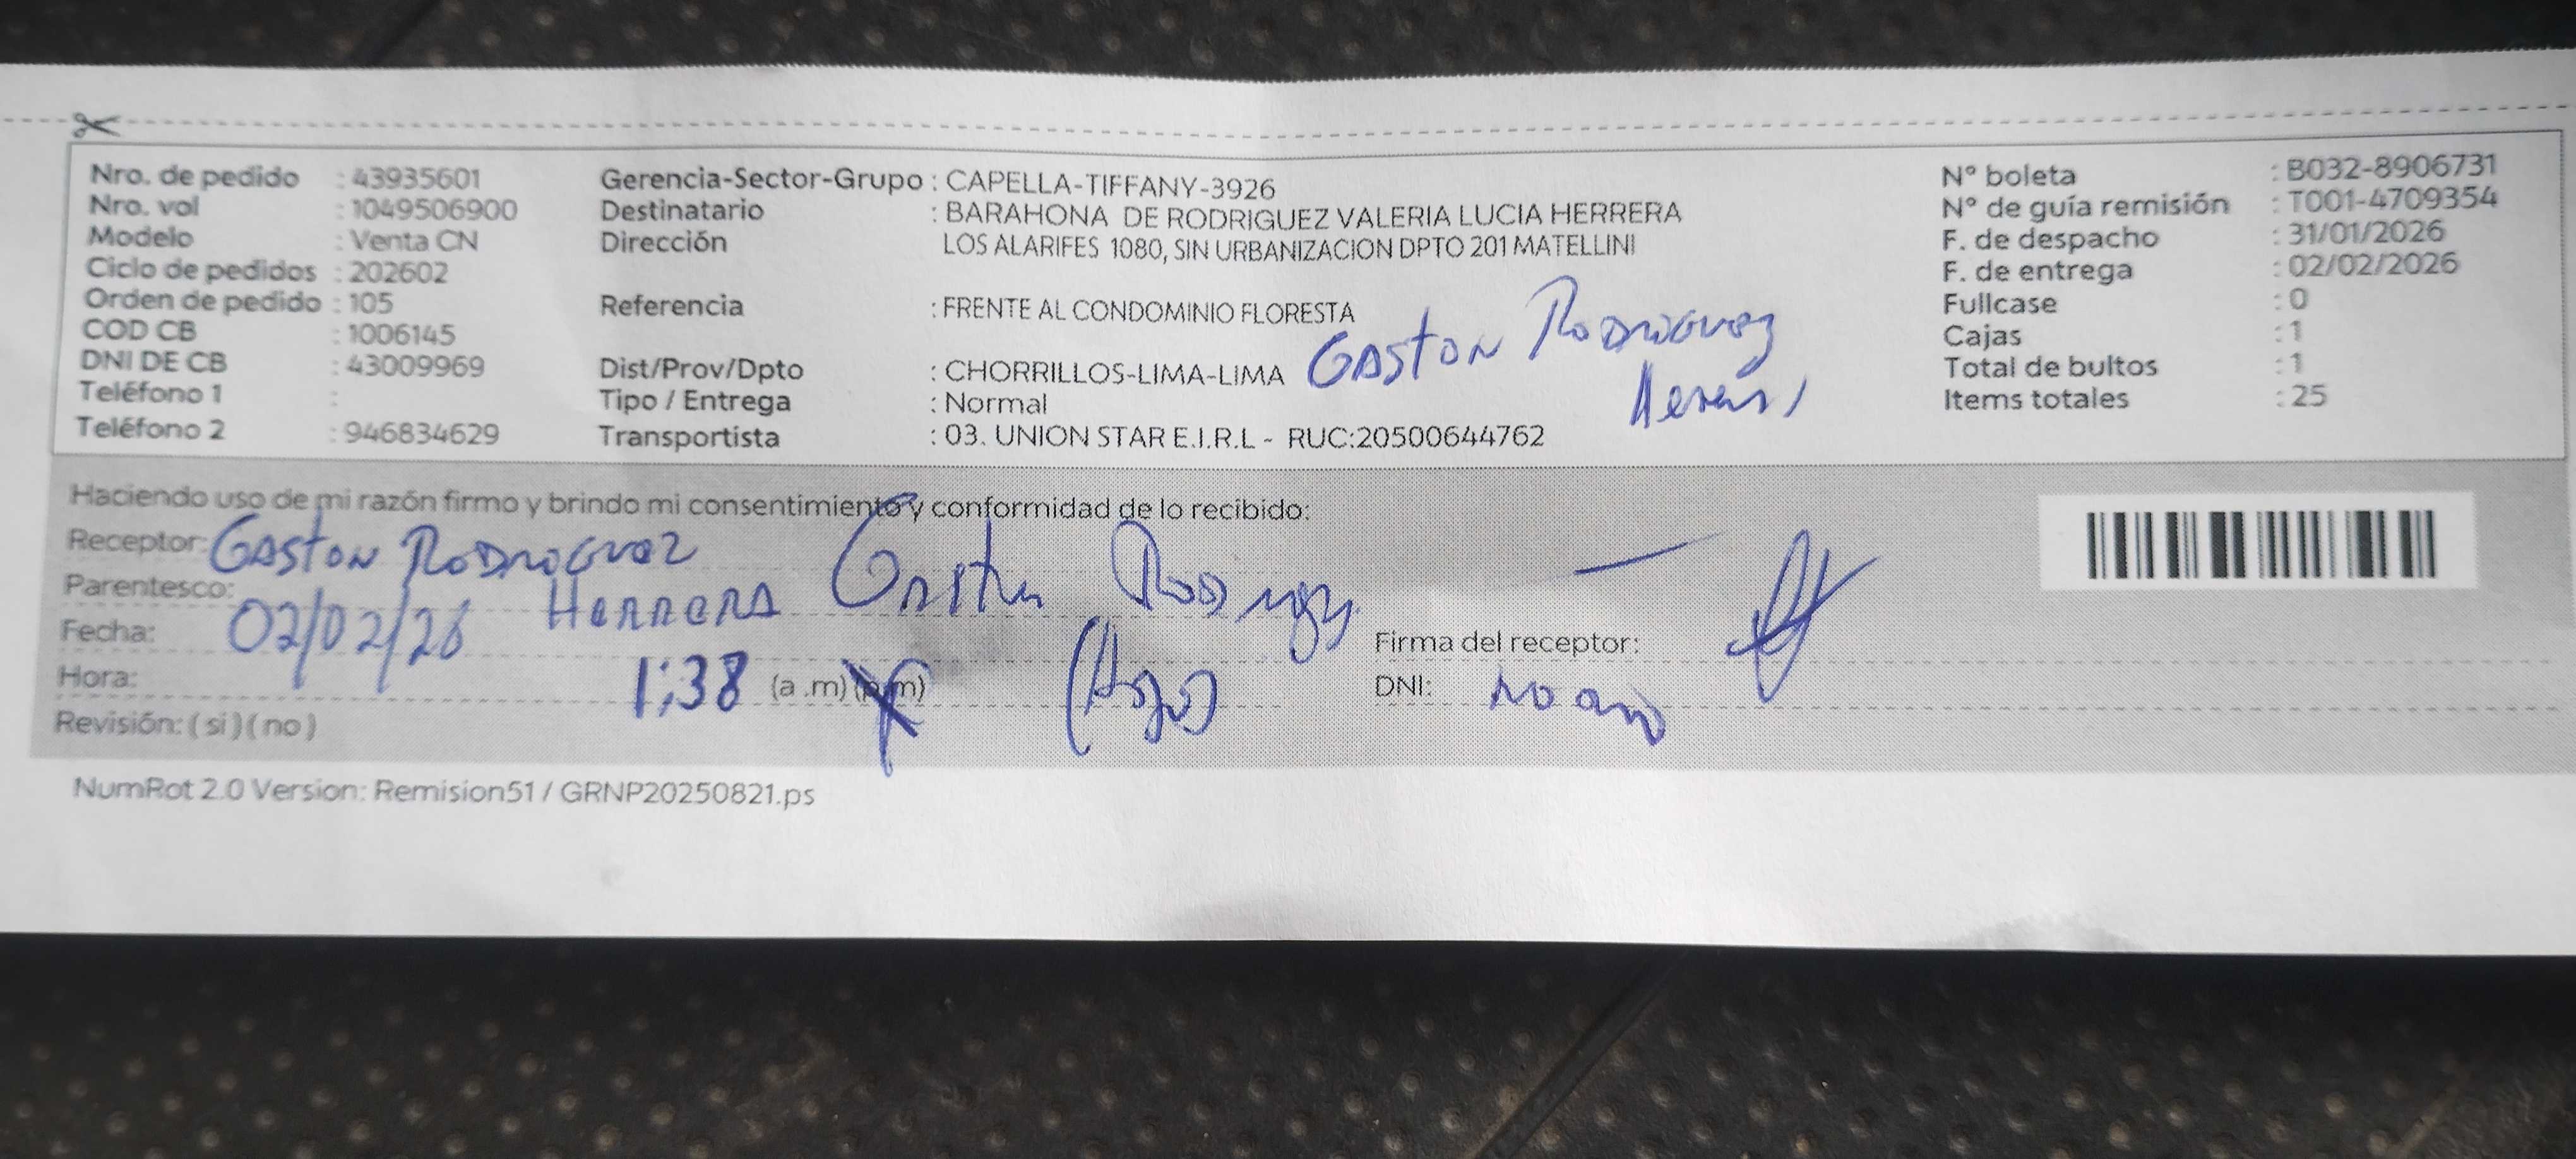 Nro. de pedido : 43935601
Nro. vol : 1049506900
Modelo : Venta CN
Ciclo de pedidos : 202602
Orden de pedido : 105
COD CB : 1006145
DNI DE CB : 43009969
Teléfono 1 :
Teléfono 2 : 946834629
Gerencia-Sector-Grupo : CAPELLA-TIFFANY-3926
Destinatario : BARAHONA DE RODRIGUEZ VALERIA LUCIA HERRERA
Dirección LOS ALARIFES 1080, SIN URBANIZACION DPTO 201 MATELLINI
Referencia : FRENTE AL CONDOMINIO FLORESTA
Dist/Prov/Dpto : CHORRILLOS-LIMA-LIMA
Tipo / Entrega : Normal
Transportista : 03. UNION STAR E.I.R.L - RUC:20500644762
Gaston Rodriguez
N° boleta : B032-8906731
N° de guía remisión : T001-4709354
F. de despacho : 31/01/2026
F. de entrega : 02/02/2026
Fullcase : 0
Cajas : 1
Total de bultos : 1
Items totales : 25
Haciendo uso de mi razón firmo y brindo mi consentimiento y conformidad de lo recibido:
Receptor: Gaston Rodriguez
Parentesco: Herrera Gaston Rodriguez
Fecha: 02/02/26
Hora: 1:38 (a .m) (p.m) (Hijo)
Revisión: ( si ) ( no )
Firma del receptor:
DNI: no
NumRot 2.0 Version: Remision51 / GRNP20250821.ps